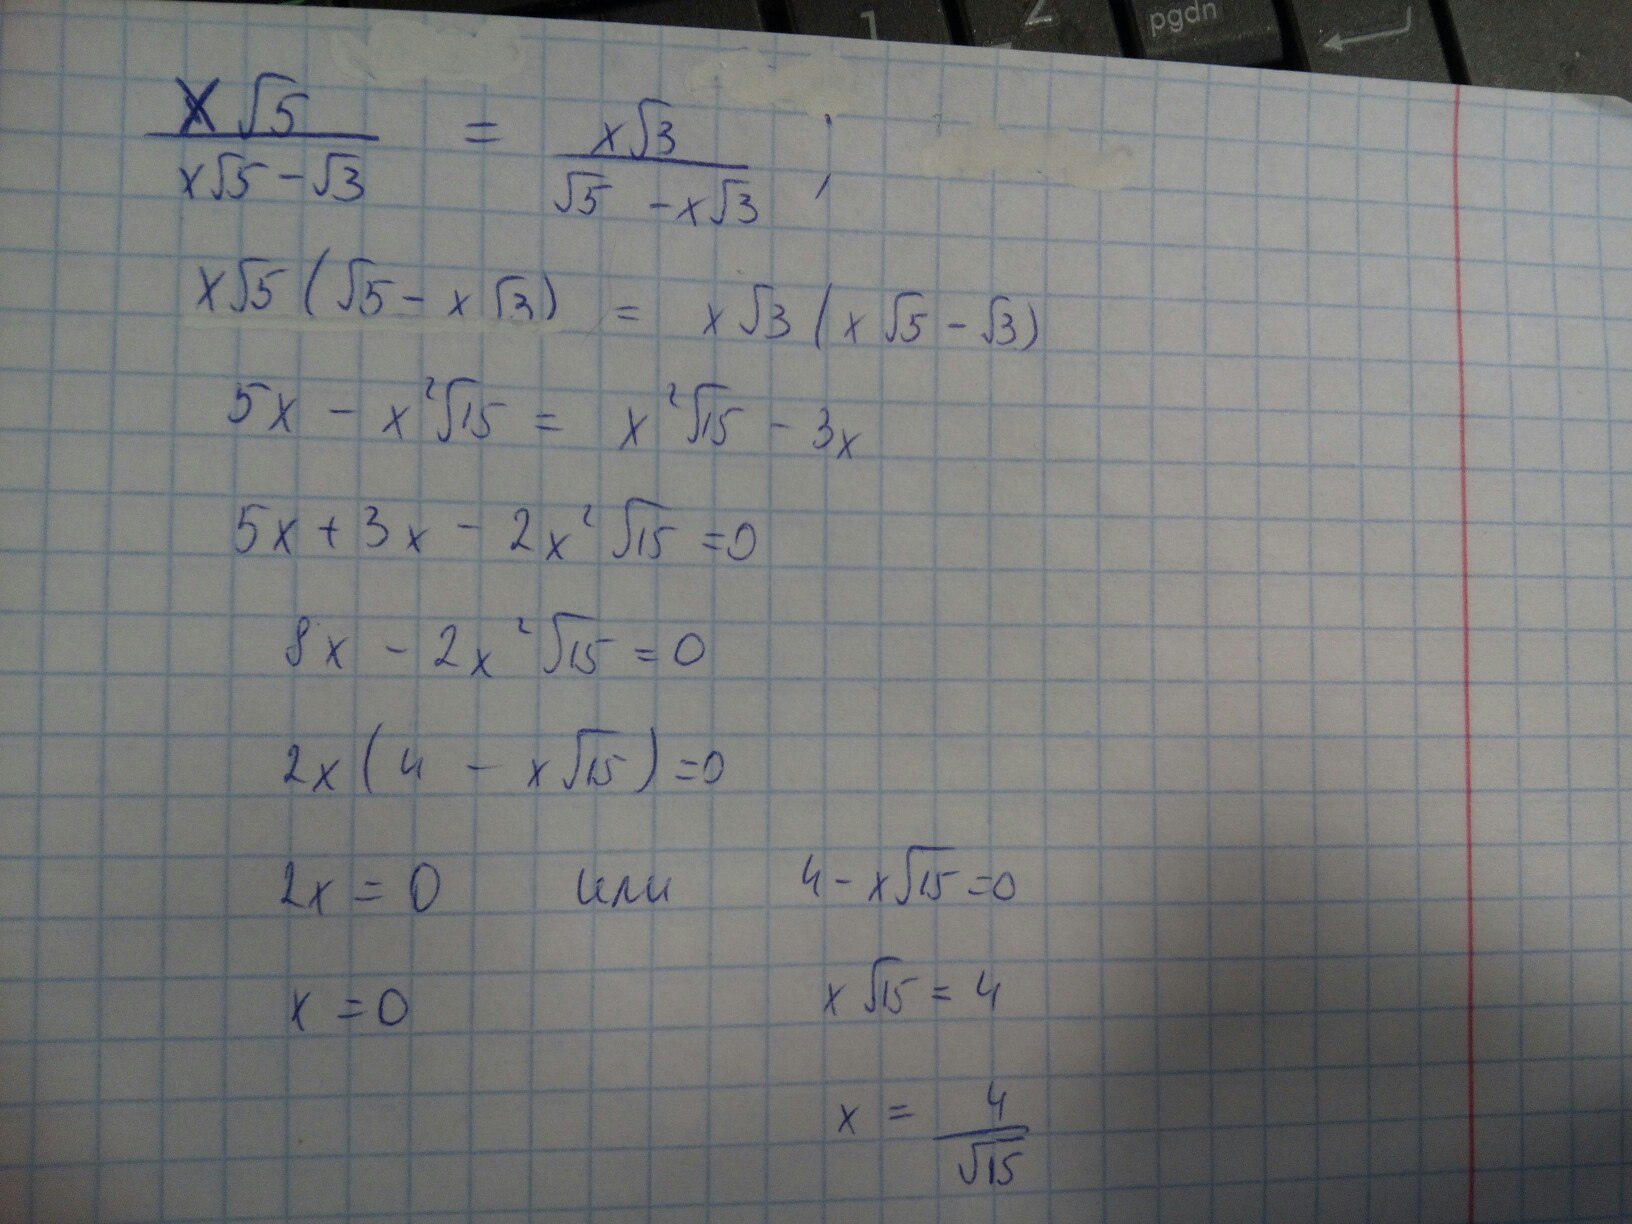 1 2 pgdn
x√5 / (x√5 - √3) = x√3 / (√5 - x√3) ;
x√5 (√5 - x√3) = x√3 (x√5 - √3)
5x - x²√15 = x²√15 - 3x
5x + 3x - 2x²√15 = 0
8x - 2x²√15 = 0
2x(4 - x√15) = 0
2x = 0 или 4 - x√15 = 0
x = 0 x√15 = 4
x = 4 / √15